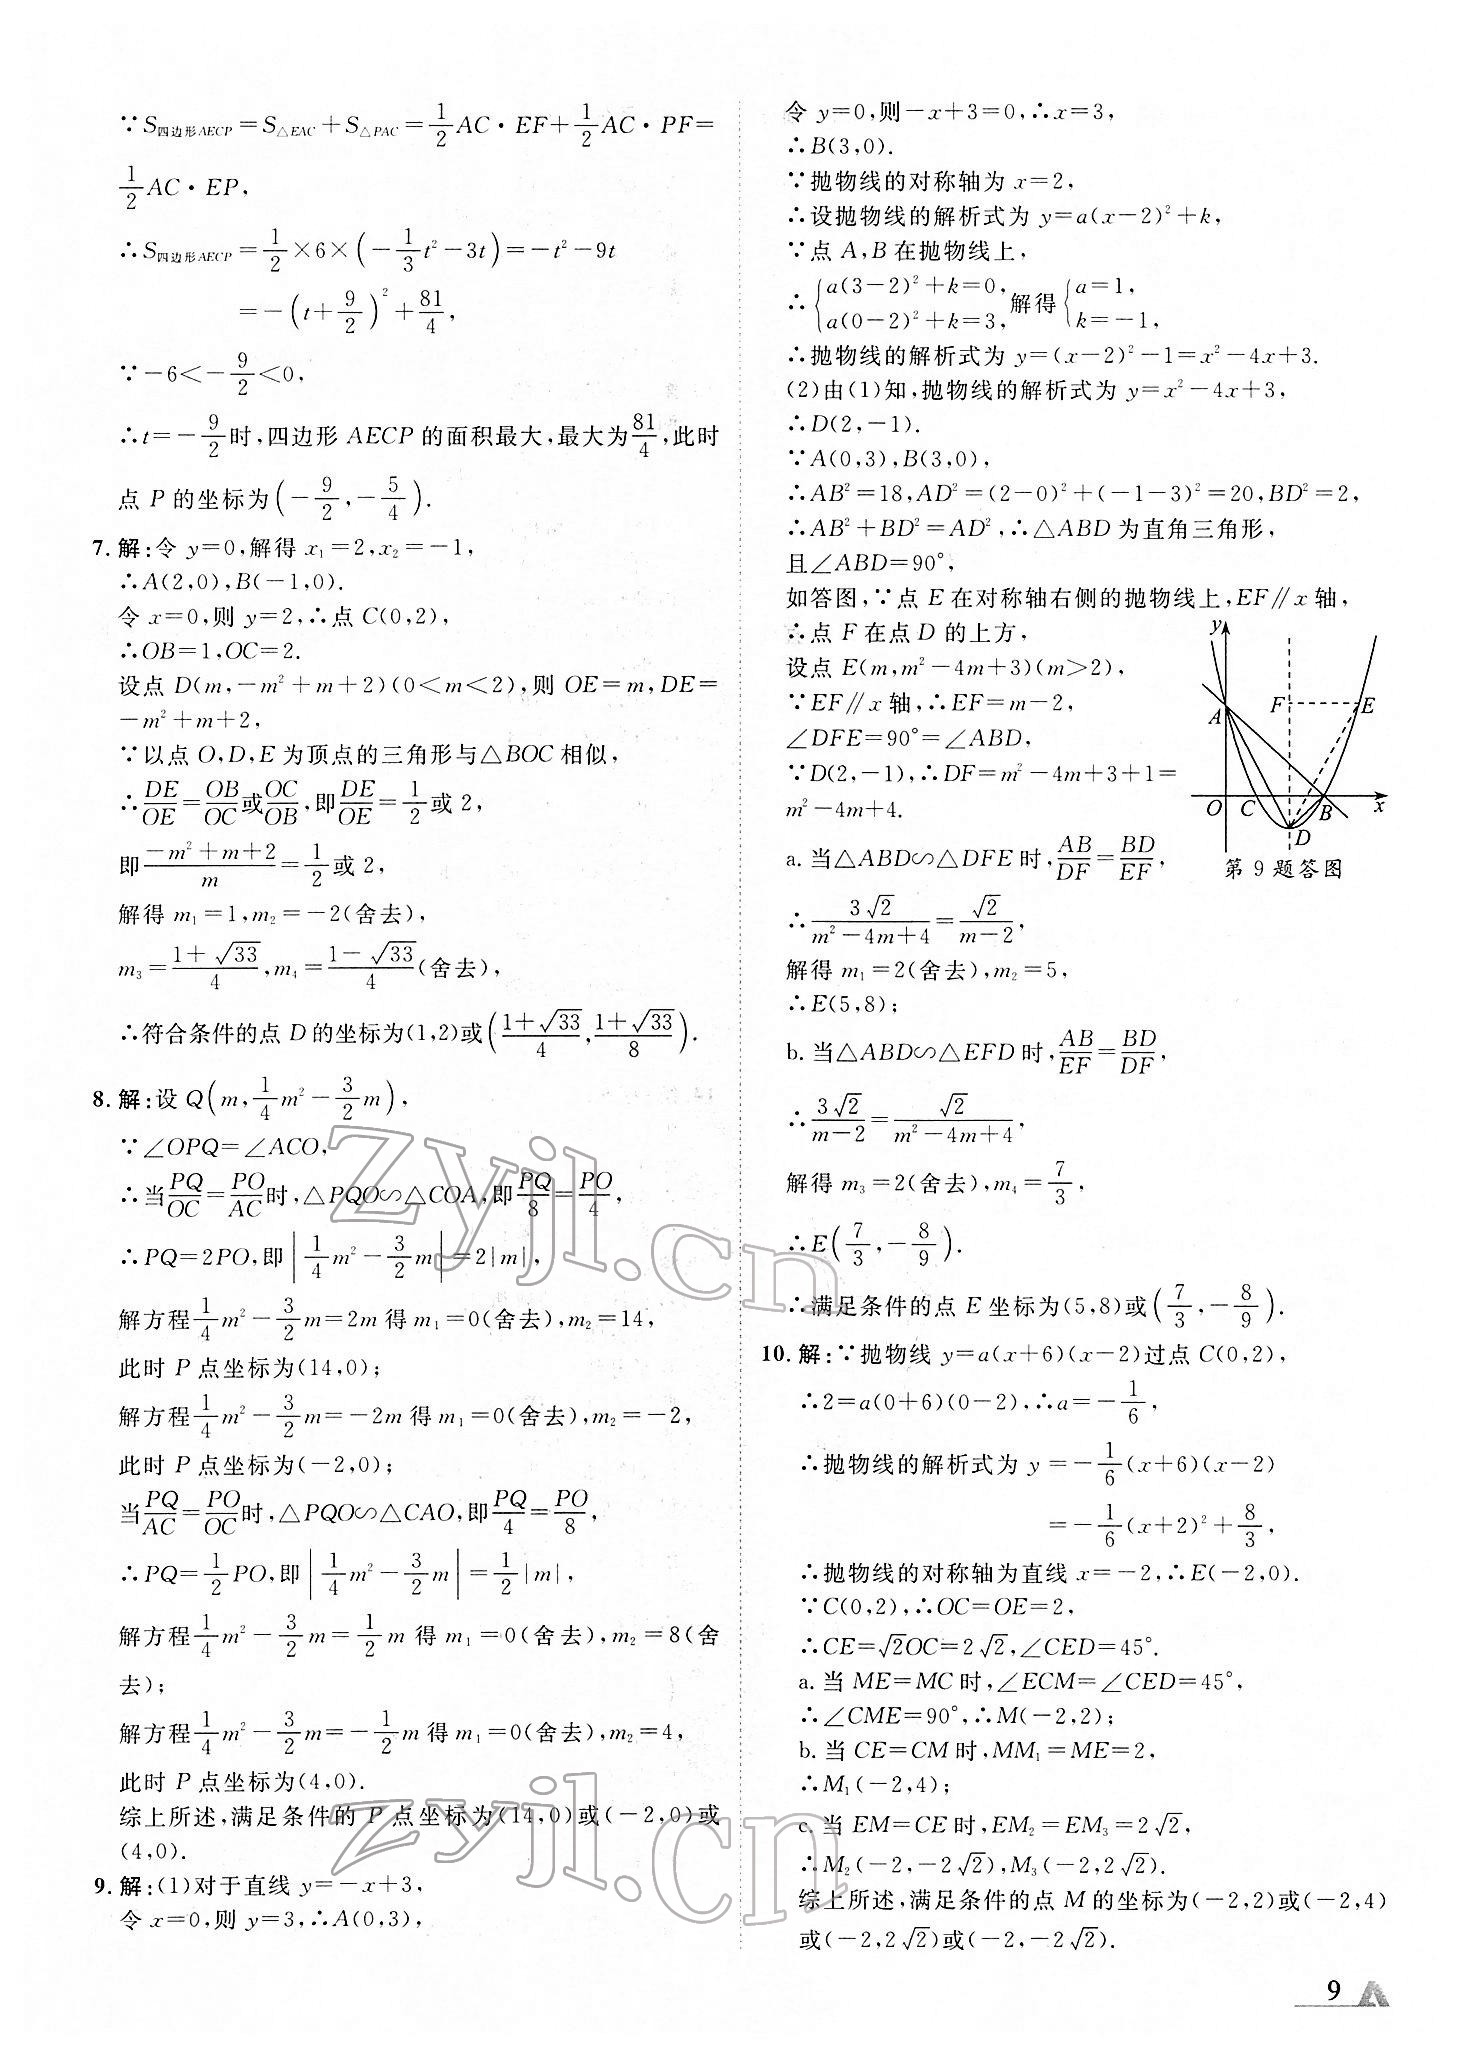 ∵S四边形AECP=S△EAC+S△PAC=1/2AC·EF+1/2AC·PF=
1/2AC·EP,
∴S四边形AECP=1/2×6×(-1/3t²-3t)=-t²-9t
=-(t+9/2)²+81/4,
∵-6<-9/2<0,
∴t=-9/2时,四边形AECP的面积最大,最大为81/4,此时
点P的坐标为(-9/2,-5/4).
7.解:令y=0,解得x₁=2,x₂=-1,
∴A(2,0),B(-1,0).
令x=0,则y=2,∴点C(0,2),
∴OB=1,OC=2.
设点D(m,-m²+m+2)(0<m<2),则OE=m,DE=
-m²+m+2,
∵以点O,D,E为顶点的三角形与△BOC相似,
∴DE/OE=OB/OC或OC/OB,即DE/OE=1/2或2,
即(-m²+m+2)/m=1/2或2,
解得m₁=1,m₂=-2(舍去),
m₃=(1+√33)/4,m₄=(1-√33)/4(舍去),
∴符合条件的点D的坐标为(1,2)或((1+√33)/4,(1+√33)/8).
8.解:设Q(m,1/4m²-3/2m),
∵∠OPQ=∠ACO,
∴当PQ/OC=PO/AC时,△PQO∽△COA,即PQ/8=PO/4,
∴PQ=2PO,即|1/4m²-3/2m|=2|m|,
解方程1/4m²-3/2m=2m得m₁=0(舍去),m₂=14,
此时P点坐标为(14,0);
解方程1/4m²-3/2m=-2m得m₁=0(舍去),m₂=-2,
此时P点坐标为(-2,0);
当PQ/AC=PO/OC时,△PQO∽△CAO,即PQ/4=PO/8,
∴PQ=1/2PO,即|1/4m²-3/2m|=1/2|m|,
解方程1/4m²-3/2m=1/2m得m₁=0(舍去),m₂=8(舍
去);
解方程1/4m²-3/2m=-1/2m得m₁=0(舍去),m₂=4,
此时P点坐标为(4,0).
综上所述,满足条件的P点坐标为(14,0)或(-2,0)或
(4,0).
9.解:(1)对于直线y=-x+3,
令x=0,则y=3,∴A(0,3),
令y=0,则-x+3=0,∴x=3,
∴B(3,0).
∵抛物线的对称轴为x=2,
∴设抛物线的解析式为y=a(x-2)²+k,
∵点A,B在抛物线上,
∴{a(3-2)²+k=0, a(0-2)²+k=3,解得{a=1, k=-1,
∴抛物线的解析式为y=(x-2)²-1=x²-4x+3.
(2)由(1)知,抛物线的解析式为y=x²-4x+3,
∴D(2,-1).
∵A(0,3),B(3,0),
∴AB²=18,AD²=(2-0)²+(-1-3)²=20,BD²=2,
∴AB²+BD²=AD²,∴△ABD为直角三角形,
且∠ABD=90°,
如答图,∵点E在对称轴右侧的抛物线上,EF∥x轴,
∴点F在点D的上方,
设点E(m,m²-4m+3)(m>2),
∵EF∥x轴,∴EF=m-2,
∠DFE=90°=∠ABD,
∵D(2,-1),∴DF=m²-4m+3+1=
m²-4m+4.
y
A
F
E
O
C
B
x
D
第9题答图
a.当△ABD∽△DFE时,AB/DF=BD/EF,
∴3√2/(m²-4m+4)=√2/(m-2),
解得m₁=2(舍去),m₂=5,
∴E(5,8);
b.当△ABD∽△EFD时,AB/EF=BD/DF,
∴3√2/(m-2)=√2/(m²-4m+4),
解得m₃=2(舍去),m₄=7/3,
∴E(7/3,-8/9).
∴满足条件的点E坐标为(5,8)或(7/3,-8/9).
10.解:∵抛物线y=a(x+6)(x-2)过点C(0,2),
∴2=a(0+6)(0-2),∴a=-1/6,
∴抛物线的解析式为y=-1/6(x+6)(x-2)
=-1/6(x+2)²+8/3,
∴抛物线的对称轴为直线x=-2,∴E(-2,0).
∵C(0,2),∴OC=OE=2,
∴CE=√2OC=2√2,∠CED=45°.
a.当ME=MC时,∠ECM=∠CED=45°,
∴∠CME=90°,∴M(-2,2);
b.当CE=CM时,MM₁=ME=2,
∴M₁(-2,4);
c.当EM=CE时,EM₂=EM₃=2√2,
∴M₂(-2,-2√2),M₃(-2,2√2).
综上所述,满足条件的点M的坐标为(-2,2)或(-2,4)
或(-2,2√2)或(-2,-2√2).
zyjl.cn
zyjl.cn
9